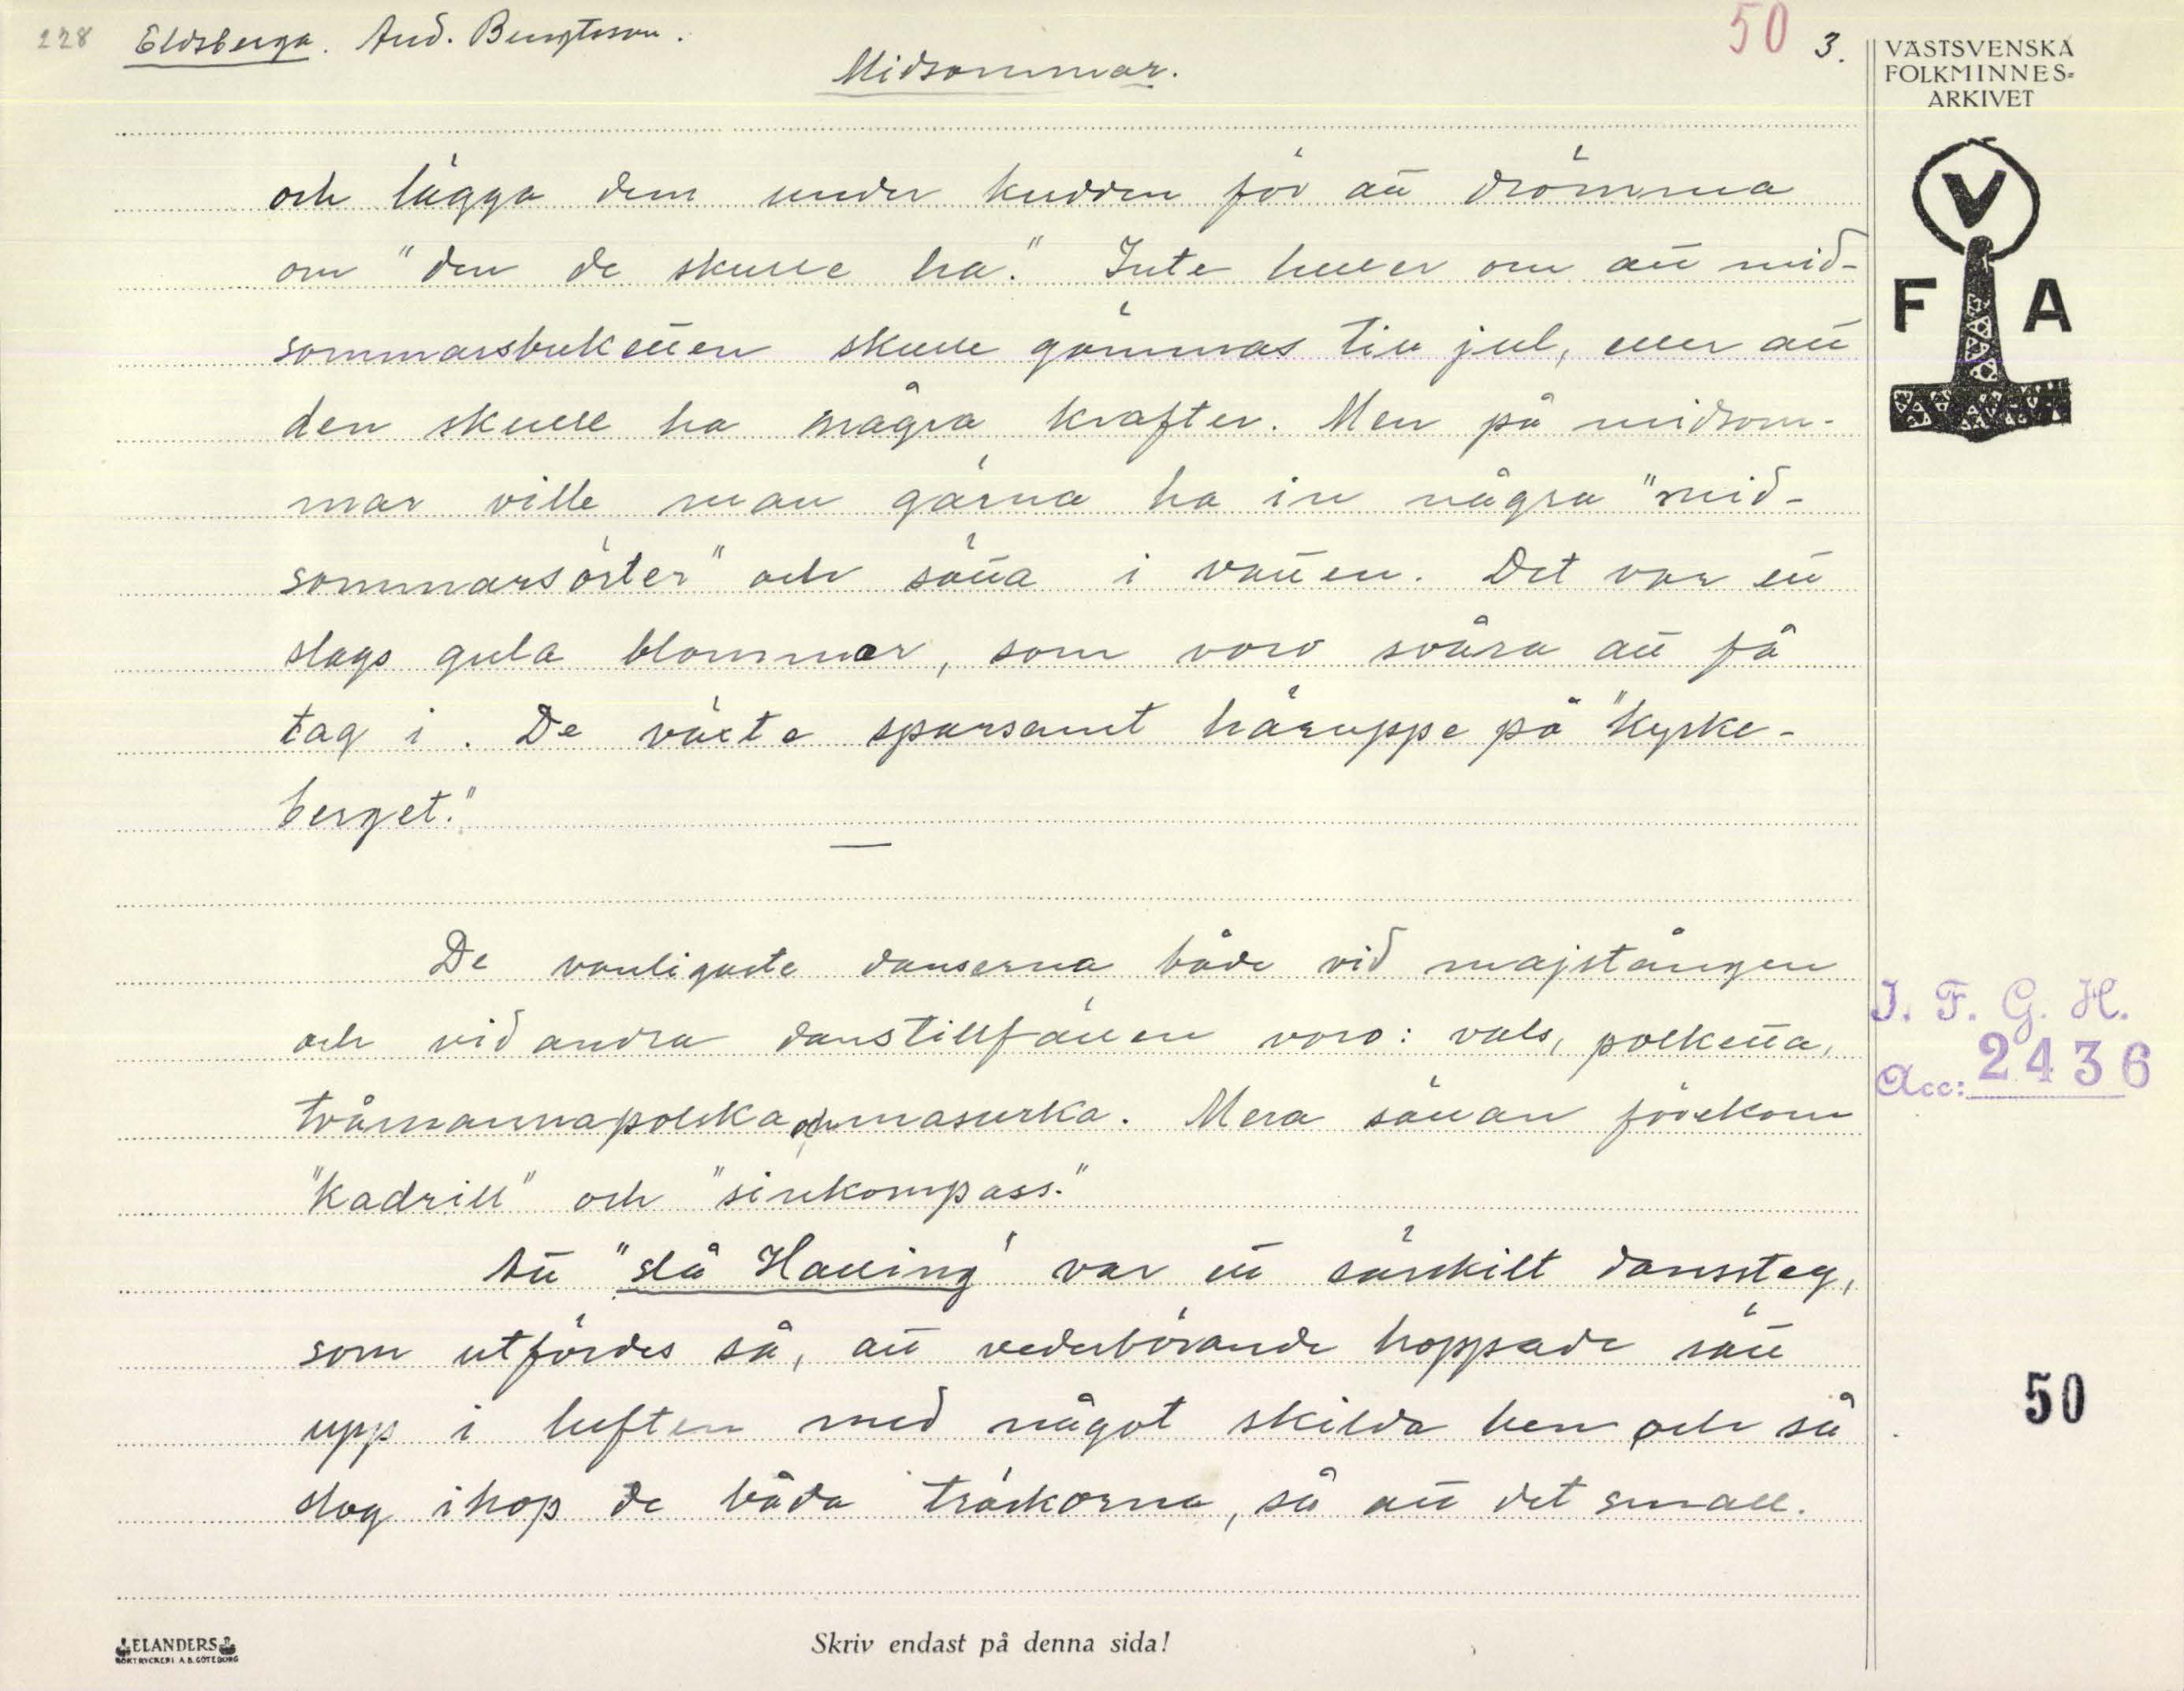 228 Eldsberga. And. Bengtsson. 50 3.
Midsommar.
VÄSTSVENSKA
FOLKMINNES-
ARKIVET
V
F A
och lägga dem under kudden för att drömma
om "den de skulle ha." Inte heller om att mid-
sommarsbuketten skulle gömmas till jul, eller att
den skulle ha några krafter. Men på midsom-
mar ville man gärna ha in några "mid-
sommarsörter" och sätta i vatten. Det var ett
slags gula blommor, som voro svåra att få
tag i. De växte sparsamt häruppe på "Kyrke-
berget."
De vanligaste danserna både vid majstången
och vid andra danstillfällen voro: vals, polketta,
tvåmannapolska och masurka. Mera sällan förekom
"Kadrill" och "sirkompass."
Att "slå Halling" var ett särskilt danssteg,
som utfördes så, att vederbörande hoppade rätt
upp i luften med något skilda ben och så
slog ihop de båda träskorna, så att det small.
I. F. G. H.
Acc: 2436
50
ELANDERS
BOKTRYCKERI A.B. GÖTEBORG
Skriv endast på denna sida!